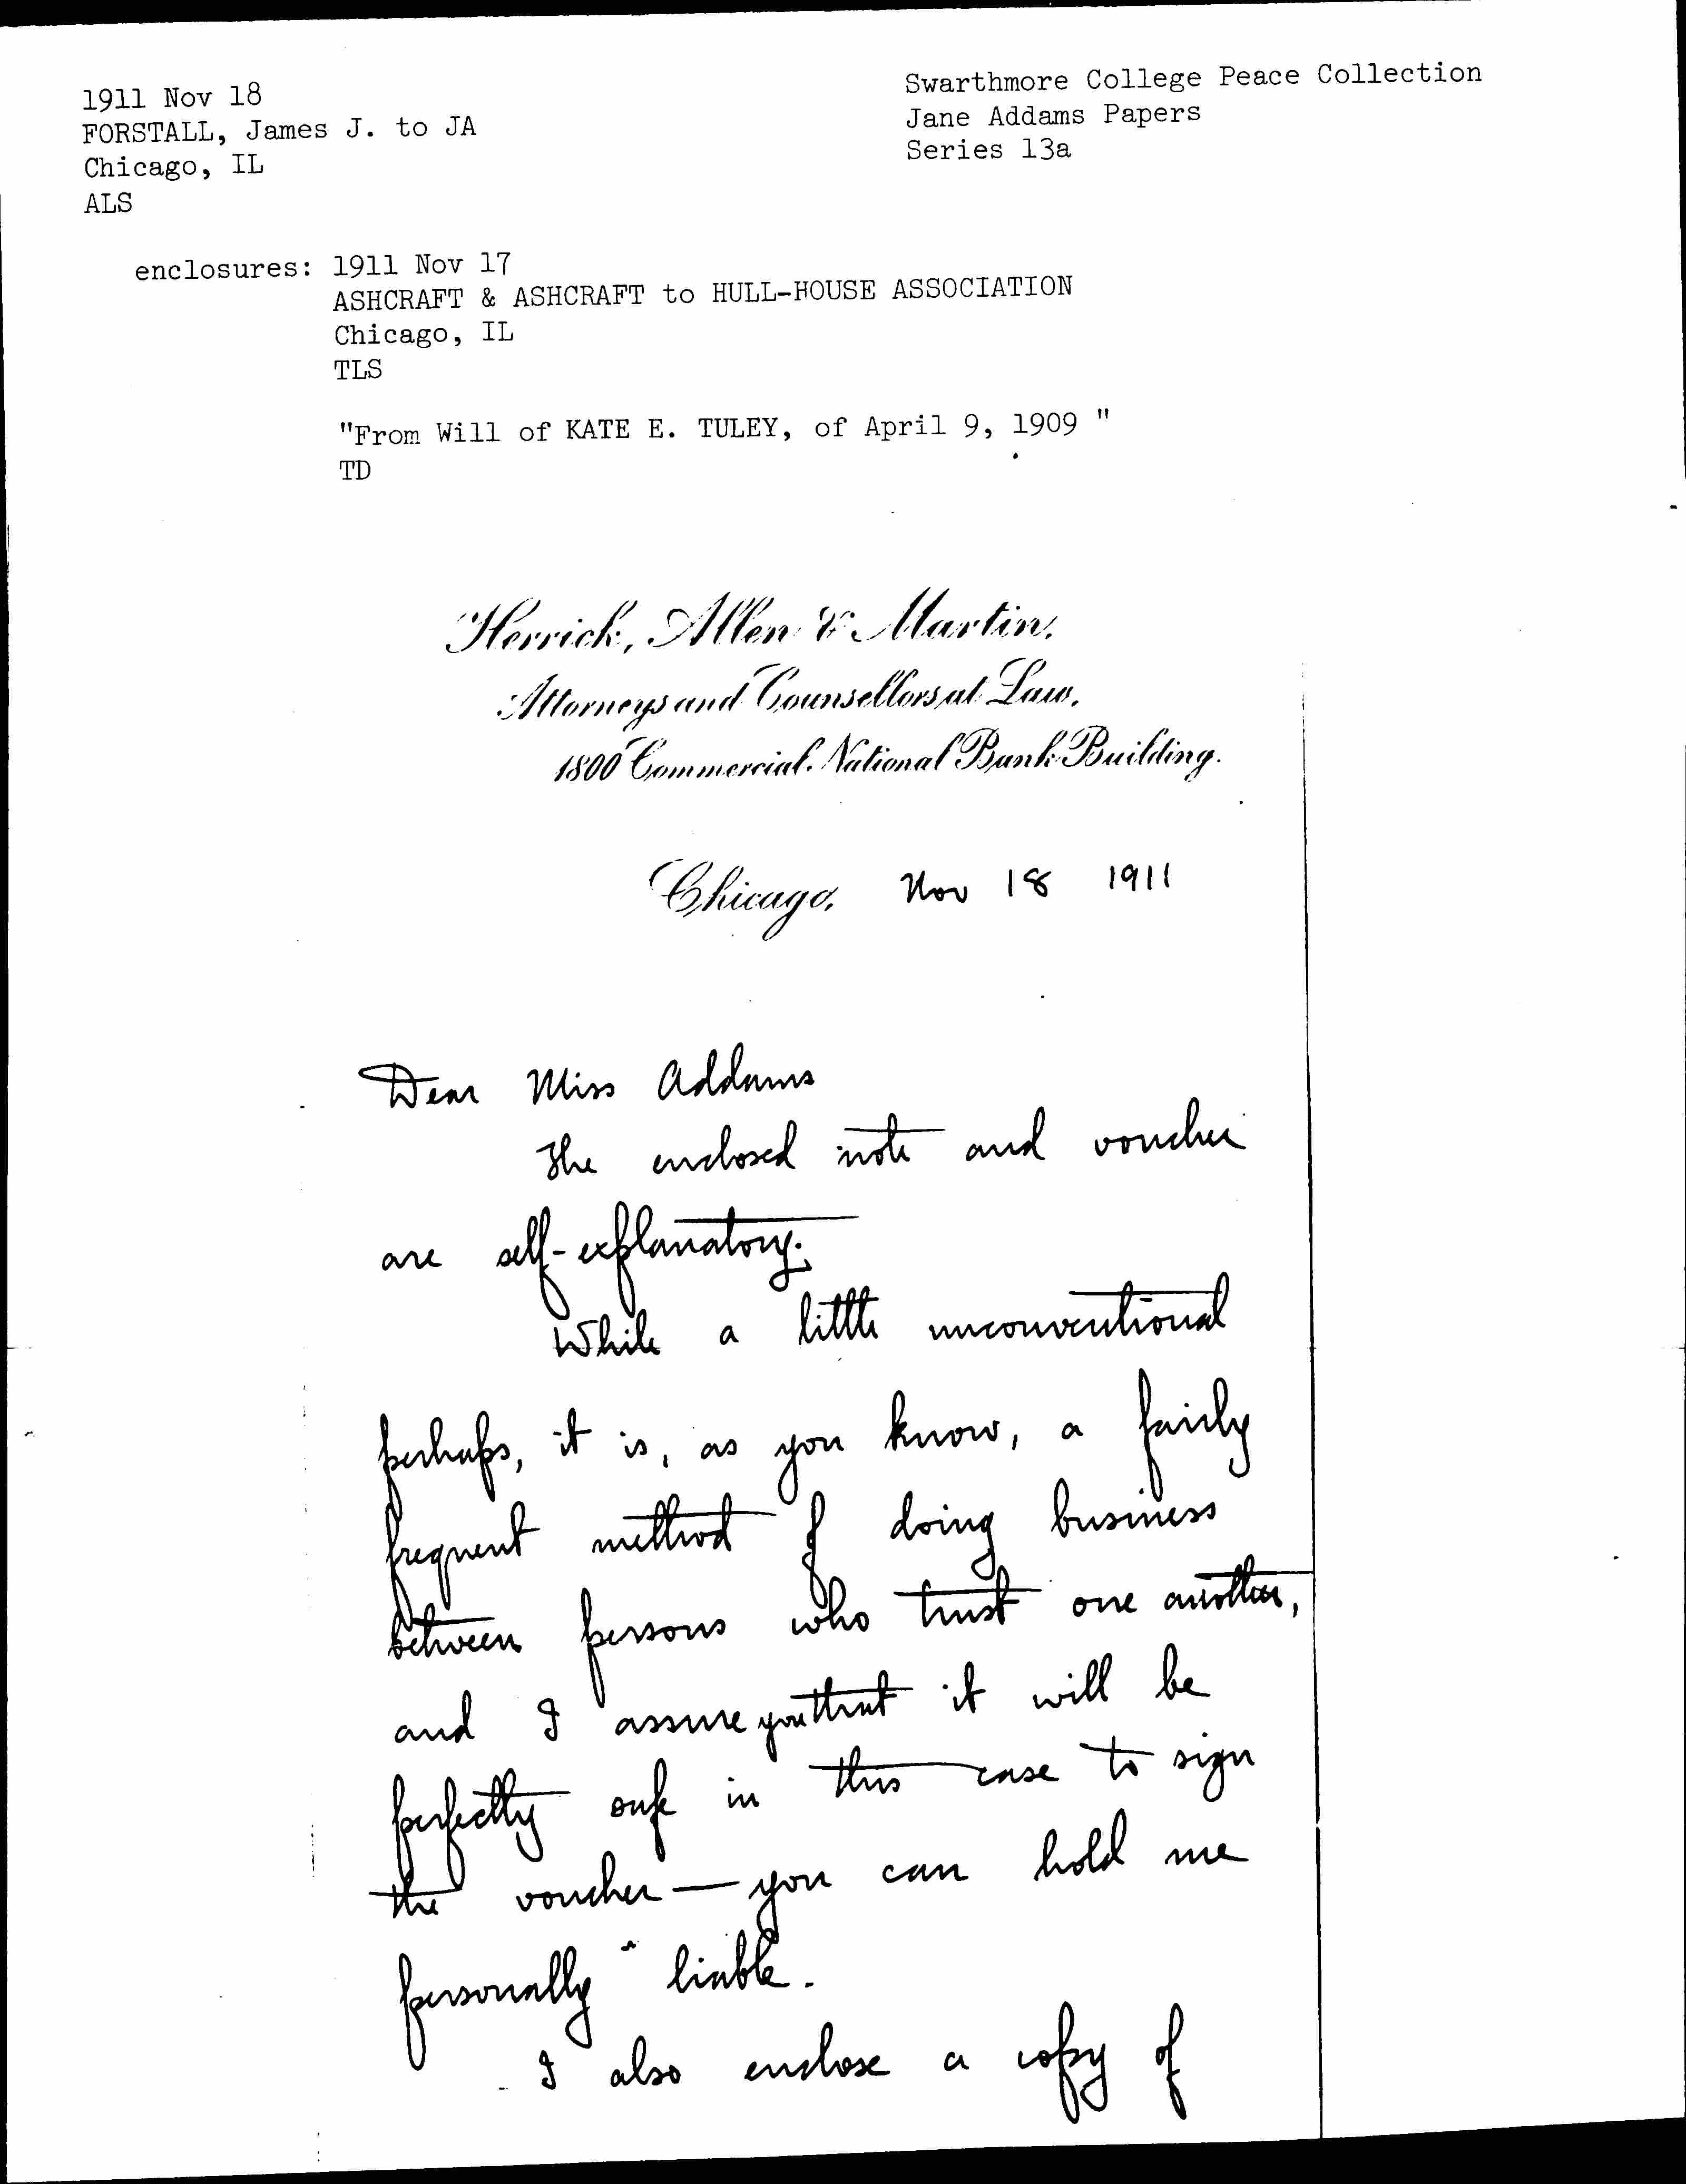 1911 Nov 18
FORSTALL, James J. to JA
Chicago, IL
ALS
Swarthmore College Peace Collection
Jane Addams Papers
Series 13a
enclosures: 1911 Nov 17
ASHCRAFT & ASHCRAFT to HULL-HOUSE ASSOCIATION
Chicago, IL
TLS
"From Will of KATE E. TULEY, of April 9, 1909 "
TD
Herrick, Allen & Martin,
Attorneys and Counsellors at Law,
1800 Commercial National Bank Building.
Chicago, Nov 18 1911
Dear Miss Addams
The enclosed note and voucher
are self-explanatory.
While a little unconventional
perhaps, it is, as you know, a fairly
frequent method of doing business
between persons who trust one another,
and I assure you that it will be
perfectly safe in this case to sign
the voucher — you can hold me
personally liable.
I also enclose a copy of